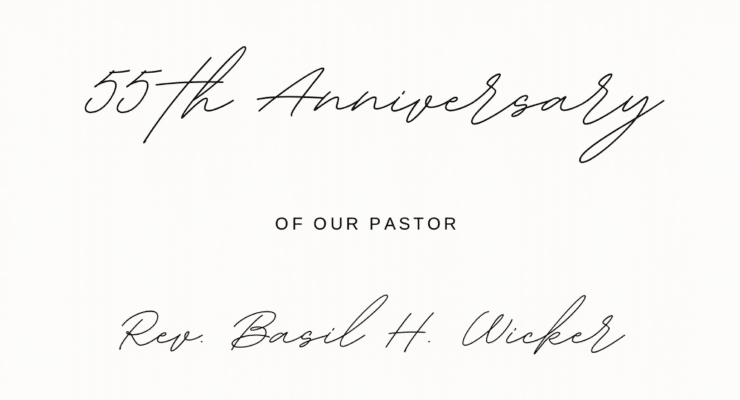 55th Anniversary
OF OUR PASTOR
Rev. Basil H. Wicker